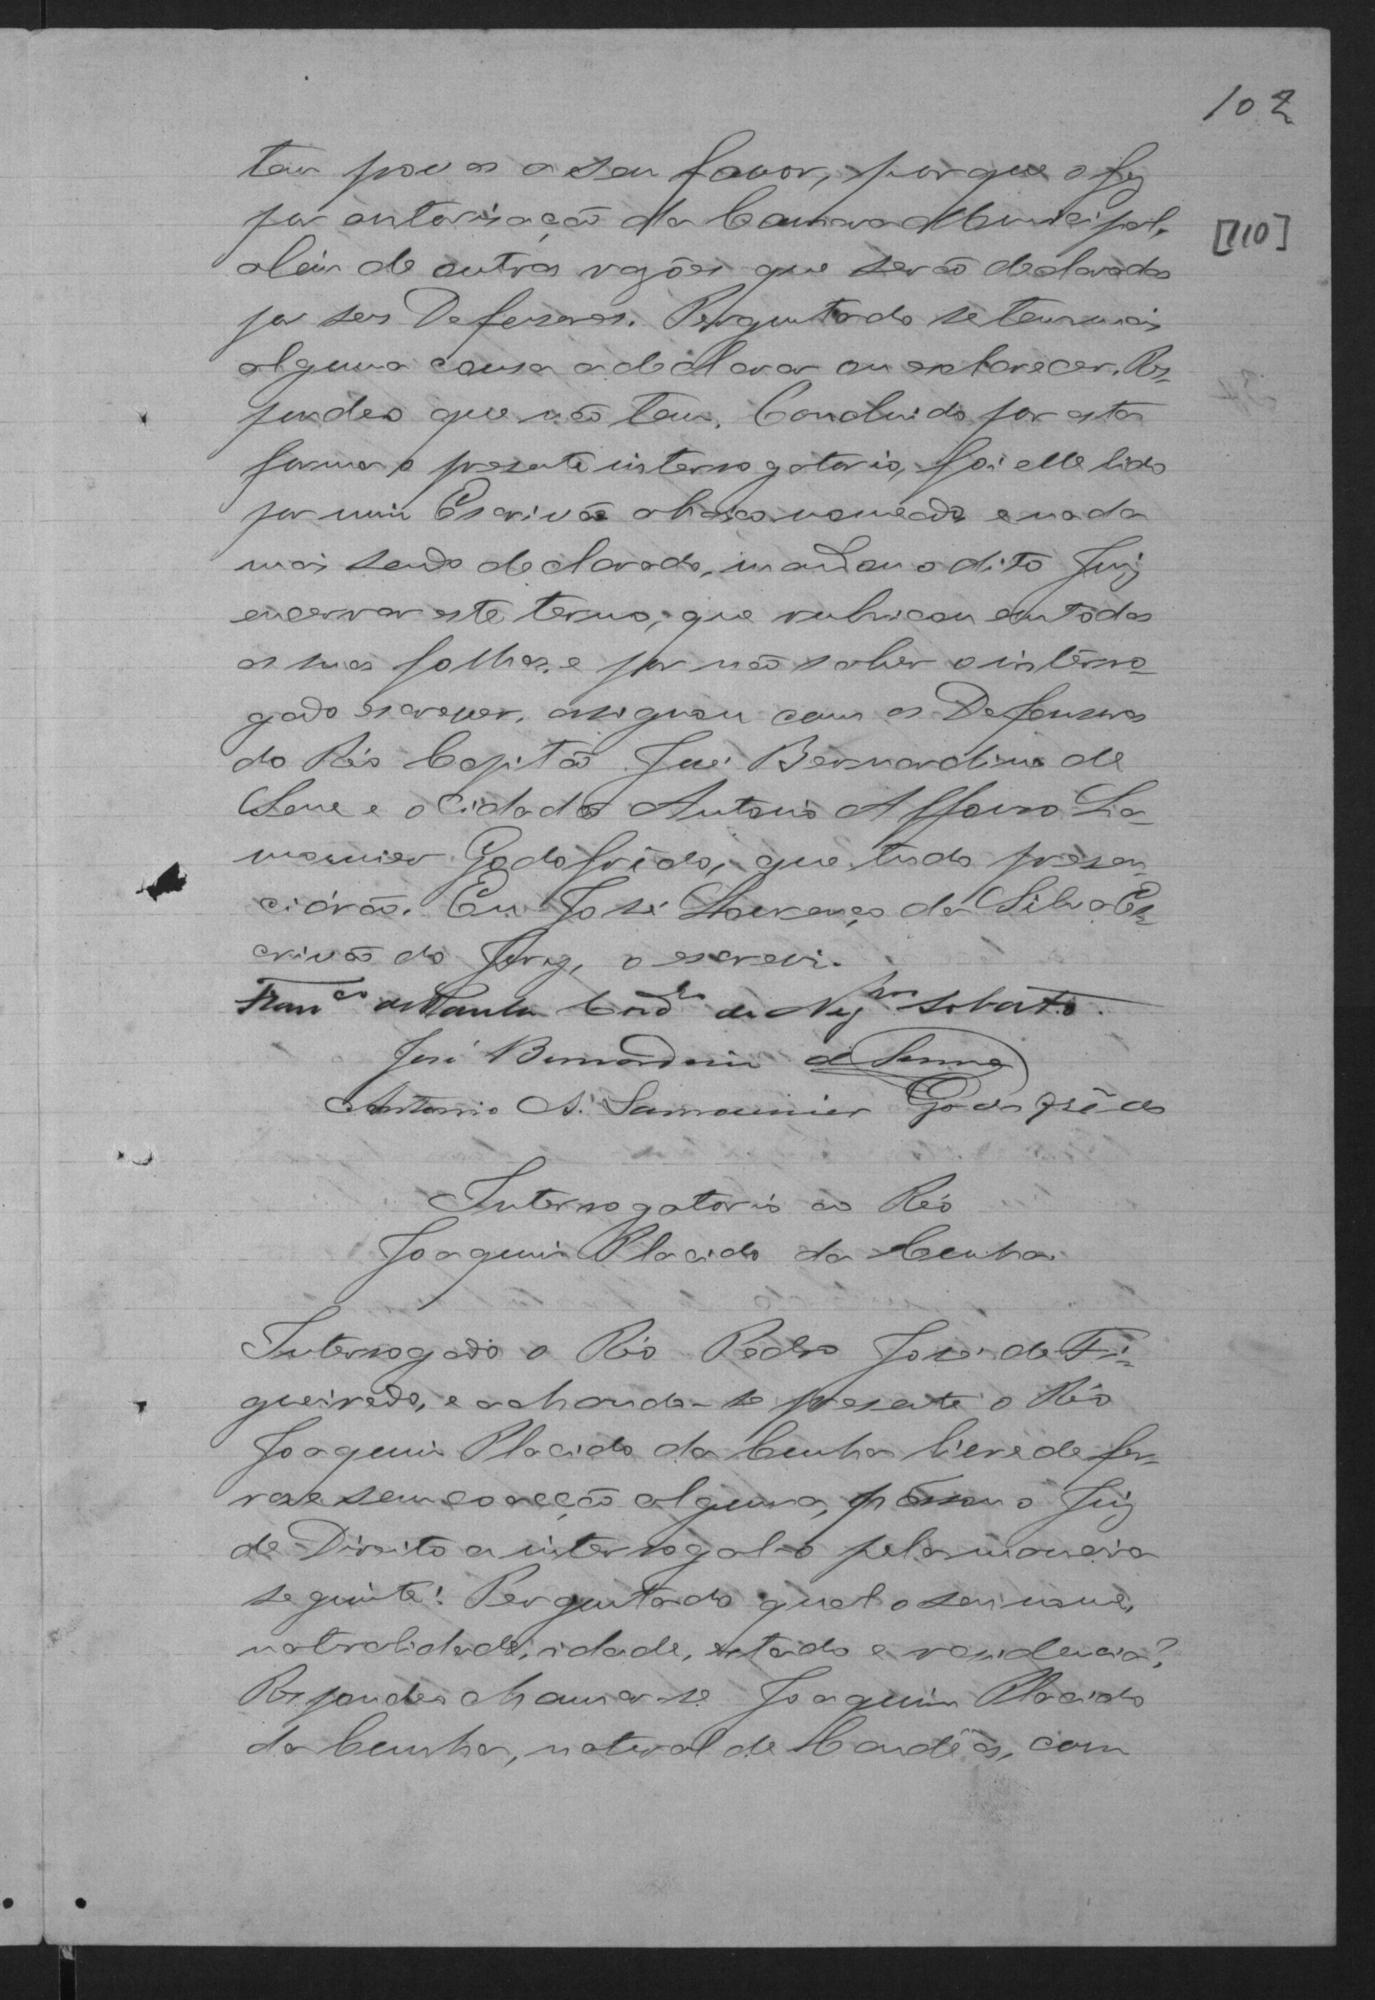 102
tem provas a seu favor, porque o fez
por autorisação da Camara Municipal,
[110]
alem de outras rasões que serão declaradas
por seus Defensores. Perguntado se tem mais
alguma cousa a declarar ou esclarecer. Res-
pondeo que não tem. Concluido por esta
forma o presente interrogatorio, foi elle lido
por mim Escrivão abaixo nomeado e nada
mais sendo declarado, mandou o dito Juiz
encerrar este termo, que rubricou em todas
as suas folhas, e por não saber o interro-
gado escrever, assignou com os Defensores
do Réo Capitão José Bernardino de
Sene e o Cidadão Antonio Affonso La-
mounier Godofrêdo, que tudo presen-
ciárão. Eu José Lourenço da Silva Es-
crivão do Jury, o escrevi.
Franco de Paula Cordo de Negros Lobato.
José Bernardino de Senna
Antonio A. Lamounier Godofrêdo
Interrogatorio ao Réo
Joaquim Placido da Cunha
Interrogado o Réo Pedro José de Fi-
gueiredo, e achando-se presente o Réo
Joaquim Placido da Cunha livre de fer-
ros e sem coacção alguma, passou o Juiz
de Direito a interrogal-o pela maneira
seguinte: Perguntado qual o seu nome,
natralidade, idade, estado e residencia?
Respondeo chamar-se Joaquim Placido
da Cunha, natural de Candêas, com